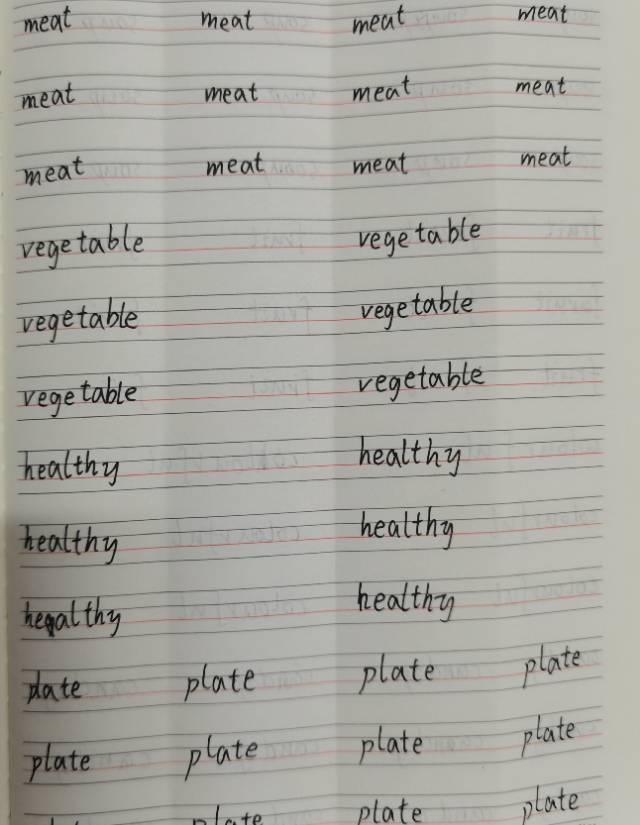 meat meat meat meat
meat meat meat meat
meat meat meat meat
vegetable vegetable
vegetable vegetable
vegetable vegetable
healthy healthy
healthy healthy
healthy healthy
plate plate plate plate
plate plate plate plate
plate plate plate